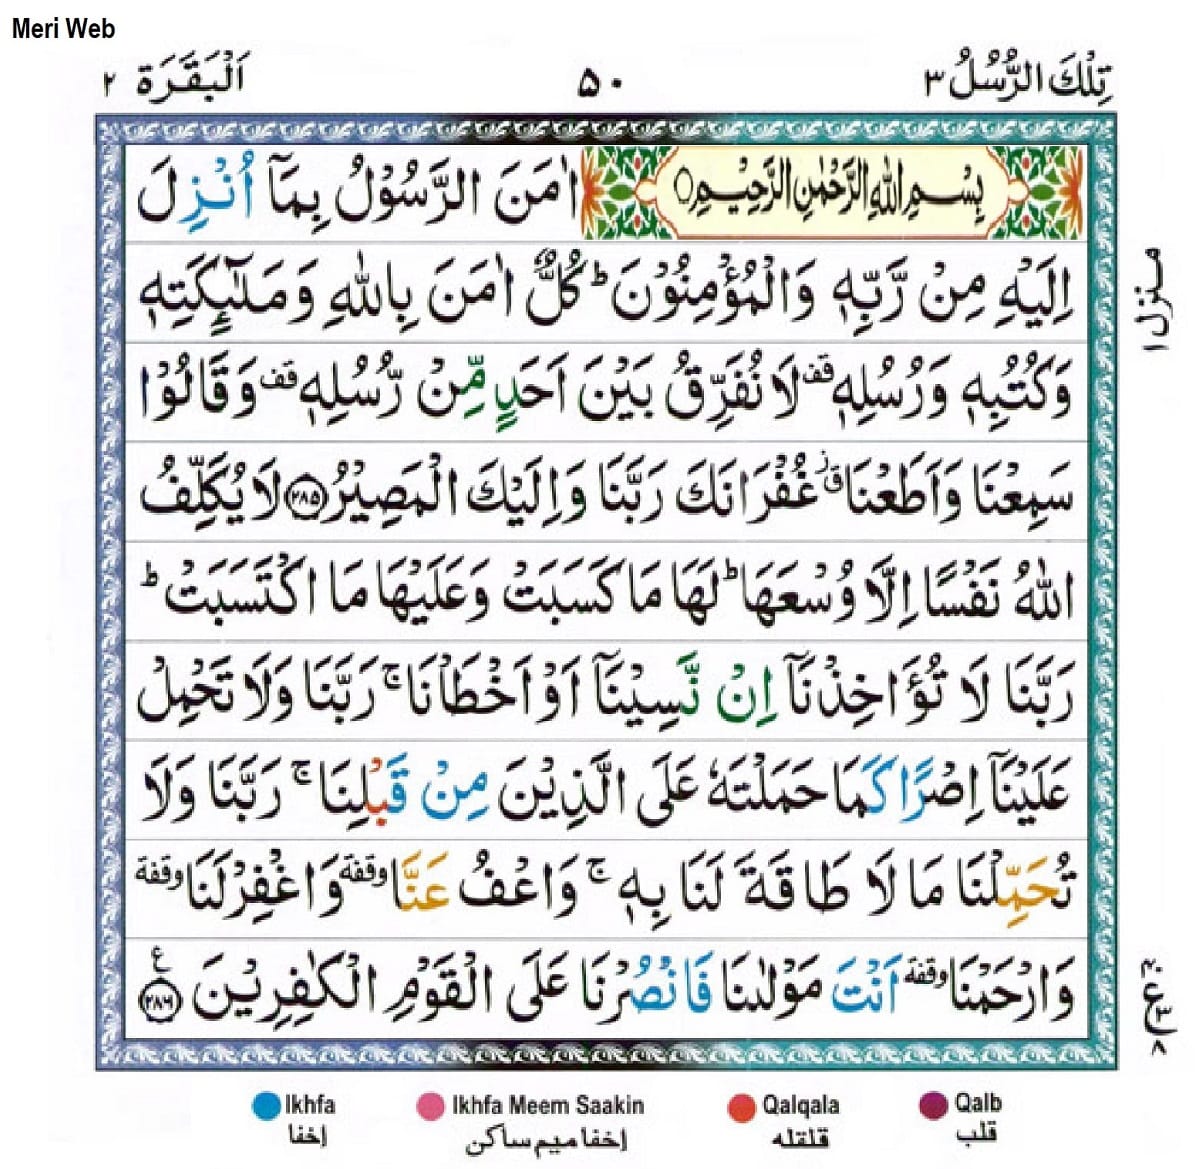 Meri Web
تِلْكَ الرُّسُلُ ٣
٥٠
اَلْبَقَرَة ٢
بِسْمِ اللهِ الرَّحْمٰنِ الرَّحِيْمِ۝ اٰمَنَ الرَّسُوْلُ بِمَاۤ اُنْزِلَ
اِلَيْهِ مِنْ رَّبِّهٖ وَالْمُؤْمِنُوْنَ ؕ كُلٌّ اٰمَنَ بِاللهِ وَمَلٰٓئِكَتِهٖ
وَكُتُبِهٖ وَرُسُلِهٖ قف لَا نُفَرِّقُ بَيْنَ اَحَدٍ مِّنْ رُّسُلِهٖ قف وَقَالُوْا
سَمِعْنَا وَاَطَعْنَا ق ز غُفْرَانَكَ رَبَّنَا وَاِلَيْكَ الْمَصِيْرُ ۝٢٨٥ لَا يُكَلِّفُ
اللهُ نَفْسًا اِلَّا وُسْعَهَا ؕ لَهَا مَا كَسَبَتْ وَعَلَيْهَا مَا اكْتَسَبَتْ ؕ
رَبَّنَا لَا تُؤَاخِذْنَاۤ اِنْ نَّسِيْنَاۤ اَوْ اَخْطَاْنَا ۚ رَبَّنَا وَلَا تَحْمِلْ
عَلَيْنَاۤ اِصْرًا كَمَا حَمَلْتَهٗ عَلَى الَّذِيْنَ مِنْ قَبْلِنَا ۚ رَبَّنَا وَلَا
تُحَمِّلْنَا مَا لَا طَاقَةَ لَنَا بِهٖ ۚ وَاعْفُ عَنَّا وقفة وَاغْفِرْ لَنَا وقفة
وَارْحَمْنَا وقفة اَنْتَ مَوْلٰىنَا فَانْصُرْنَا عَلَى الْقَوْمِ الْكٰفِرِيْنَ ۝٢٨٦ ع
منزل ١
Ikhfa
Ikhfa Meem Saakin
Qalqala
Qalb
إخفا
إخفا ميم ساكن
قلقله
قلب